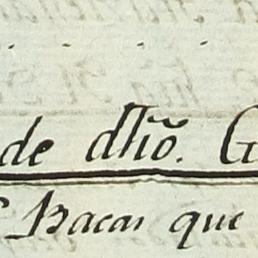 de dhõ. G
Bacas que